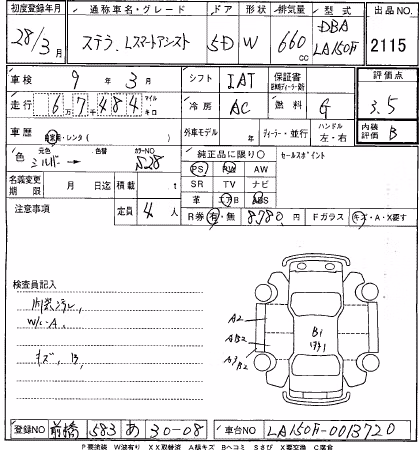 初度登録年月 通称車名・グレード ドア 形状 排気量 型式 出品NO
28/3月 ステラ Lスマートアシスト 5D W 660cc DBA LA150F 2115
車検 9年 3月 シフト IAT 保証書 評価点
走行 6万7千484 マイル キロ 冷房 AC 燃料 G 3.5
車歴 自家用・レンタ( ) 外車モデル 年 ディーラー・並行 ハンドル 左・右 内装評価 B
色 元色 シルバー 色替 カラーNO S28 純正品に限り○ セールスポイント
名義変更期限 月 日迄 積載 t PS PW AW
SR TV ナビ
注意事項 定員 4人 革 エアB ABS
R券 有・無 8780円 Fガラス キズ・A・X要す
検査員記入
内装汚れ、
W/c-A、
キズ、B、
A2
AB2
A3
B2
B1
登録NO 前橋 583 あ 30-08 車台NO LA150F-0013720
P要塗装 W波有り XX取替済 A線キズ Bヘコミ Sさび X要交換 C腐食